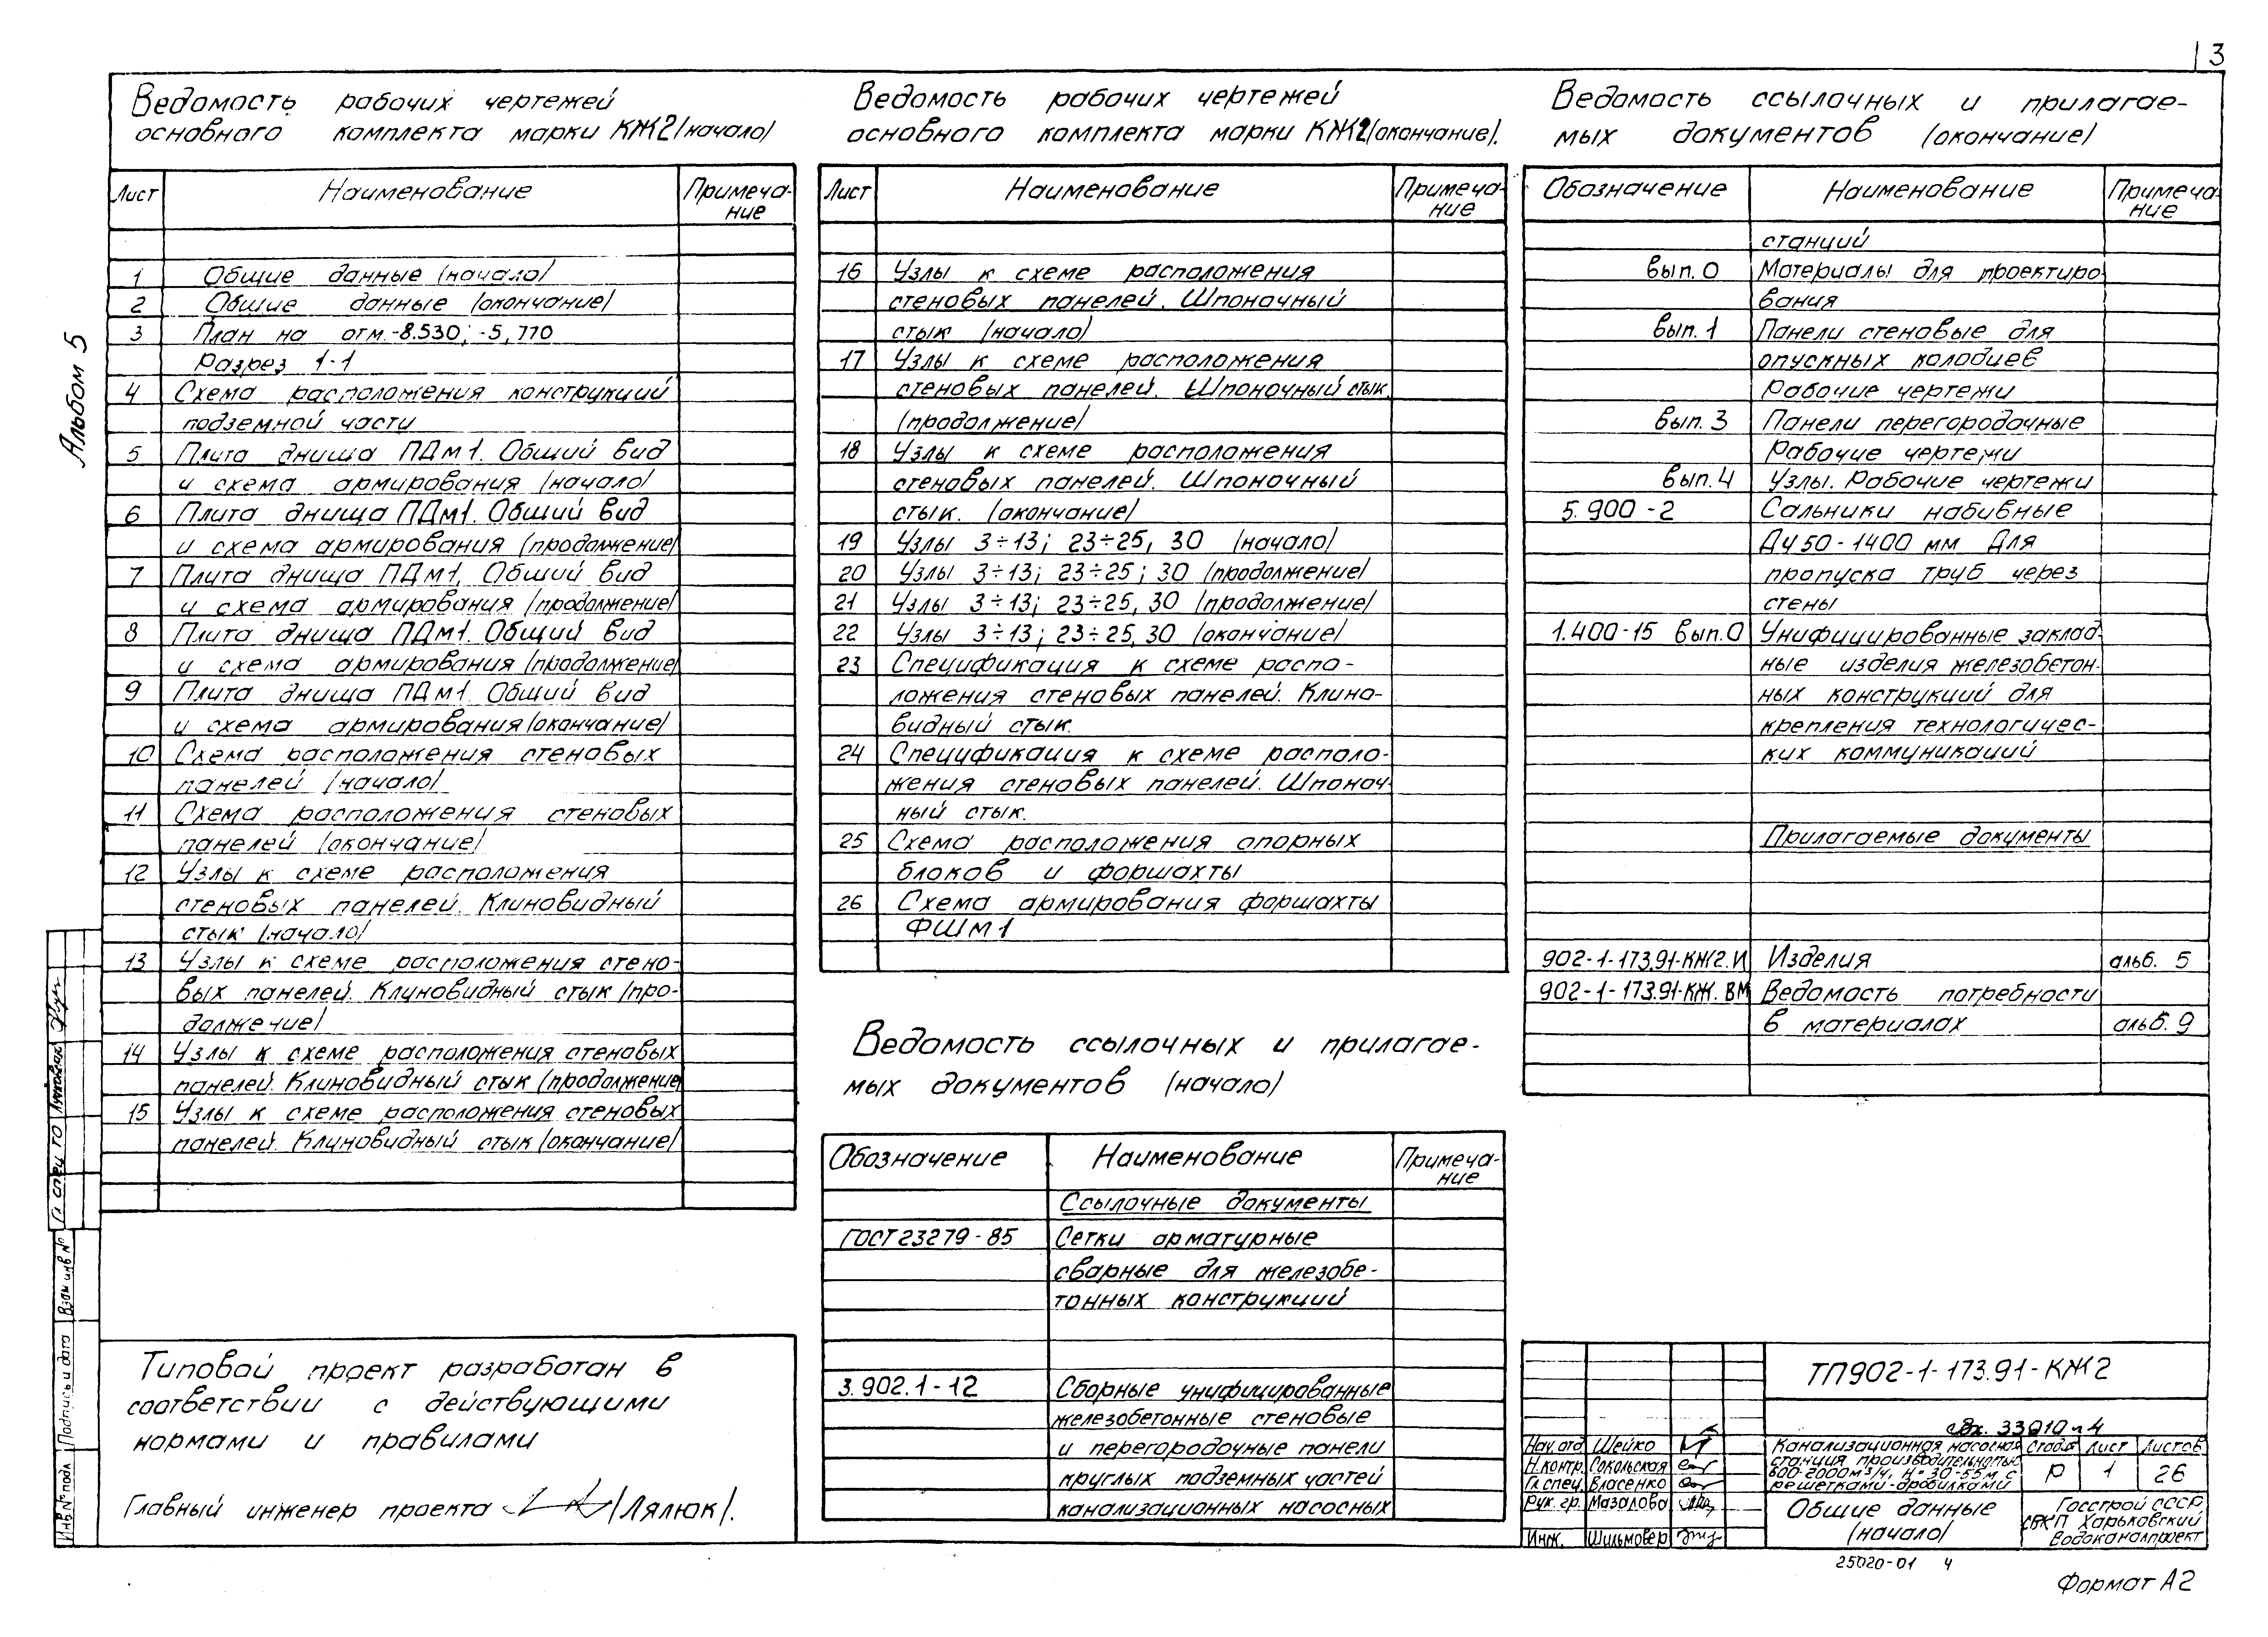 3
Альбом 5
Ведомость рабочих чертежей
основного комплекта марки КЖ2 (начало)
Лист Наименование Примеча-
ние
1 Общие данные (начало)
2 Общие данные (окончание)
3 План на отм.-8.530; -5,770
Разрез 1-1
4 Схема расположения конструкций
подземной части
5 Плита днища ПДм1. Общий вид
и схема армирования (начало)
6 Плита днища ПДм1. Общий вид
и схема армирования (продолжение)
7 Плита днища ПДм1. Общий вид
и схема армирования (продолжение)
8 Плита днища ПДм1. Общий вид
и схема армирования (продолжение)
9 Плита днища ПДм1. Общий вид
и схема армирования (окончание)
10 Схема расположения стеновых
панелей (начало)
11 Схема расположения стеновых
панелей (окончание)
12 Узлы к схеме расположения
стеновых панелей. Клиновидный
стык (начало)
13 Узлы к схеме расположения стено-
вых панелей. Клиновидный стык (про-
должение)
14 Узлы к схеме расположения стеновых
панелей. Клиновидный стык (продолжение)
15 Узлы к схеме расположения стеновых
панелей. Клиновидный стык (окончание)
Типовой проект разработан в
соответствии с действующими
нормами и правилами
Главный инженер проекта (Лялюк).
Ведомость рабочих чертежей
основного комплекта марки КЖ2 (окончание).
Лист Наименование Примеча-
ние
16 Узлы к схеме расположения
стеновых панелей. Шпоночный
стык (начало)
17 Узлы к схеме расположения
стеновых панелей. Шпоночный стык.
(продолжение)
18 Узлы к схеме расположения
стеновых панелей. Шпоночный
стык. (окончание)
19 Узлы 3÷13; 23÷25, 30 (начало)
20 Узлы 3÷13; 23÷25; 30 (продолжение)
21 Узлы 3÷13; 23÷25, 30 (продолжение)
22 Узлы 3÷13; 23÷25, 30 (окончание)
23 Спецификация к схеме распо-
ложения стеновых панелей. Клино-
видный стык.
24 Спецификация к схеме располо-
жения стеновых панелей. Шпоноч-
ный стык.
25 Схема расположения опорных
блоков и форшахты
26 Схема армирования форшахты
ФШм1
Ведомость ссылочных и прилагае-
мых документов (начало)
Обозначение Наименование Примеча-
ние
Ссылочные документы
ГОСТ 23279-85 Сетки арматурные
сварные для железобе-
тонных конструкций
3.902.1-12 Сборные унифицированные
железобетонные стеновые
и перегородочные панели
круглых подземных частей
канализационных насосных
Ведомость ссылочных и прилагае-
мых документов (окончание)
Обозначение Наименование Примеча-
ние
станций
вып. 0 Материалы для проектиро
вания
вып. 1 Панели стеновые для
опускных колодцев
Рабочие чертежи
вып. 3 Панели перегородочные
Рабочие чертежи
вып. 4 Узлы. Рабочие чертежи
5.900-2 Сальники набивные
Ду 50-1400 мм Для
пропуска труб через
стены
1.400-15 вып.0 Унифицированные заклад-
ные изделия железобетон-
ных конструкций для
крепления технологичес-
ких коммуникаций
Прилагаемые документы
902-1-173.91-КЖ2.И Изделия альб. 5
902-1-173.91-КЖ.ВМ Ведомость потребности
в материалах альб. 9
ТП902-1-173.91-КЖ2
Нач.отд. Шейко
Н.контр. Сокольская
Гл.спец. Власенко
Рук.гр. Мазалова
Инж. Шильмовер
Канализационная насосная
станция производительностью
600-2000м3/ч, Н=30-55м с
решетками-дробилками
Стадия Лист Листов
Р 1 26
Общие данные
(начало)
Госстрой СССР
Харьковский
Водоканалпроект
25020-01 4
Формат А2
Гл спец ТО
Взам инв №
Подпись и дата
Инв.№ подл